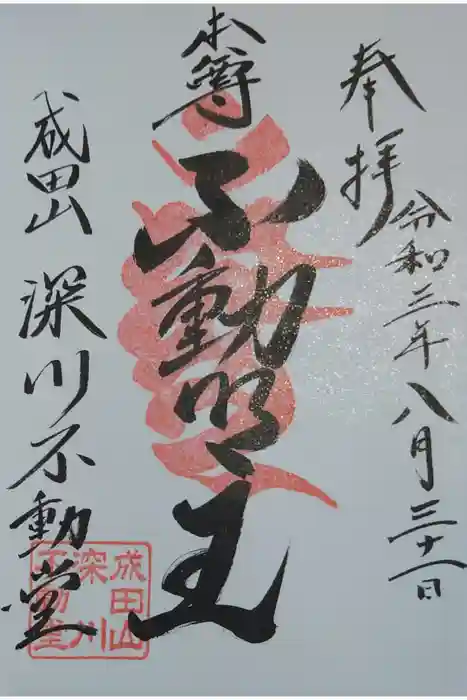 奉拝
令和三年八月三十一日
本尊
不動明王
成田山 深川不動堂
成田山
深川
不動堂